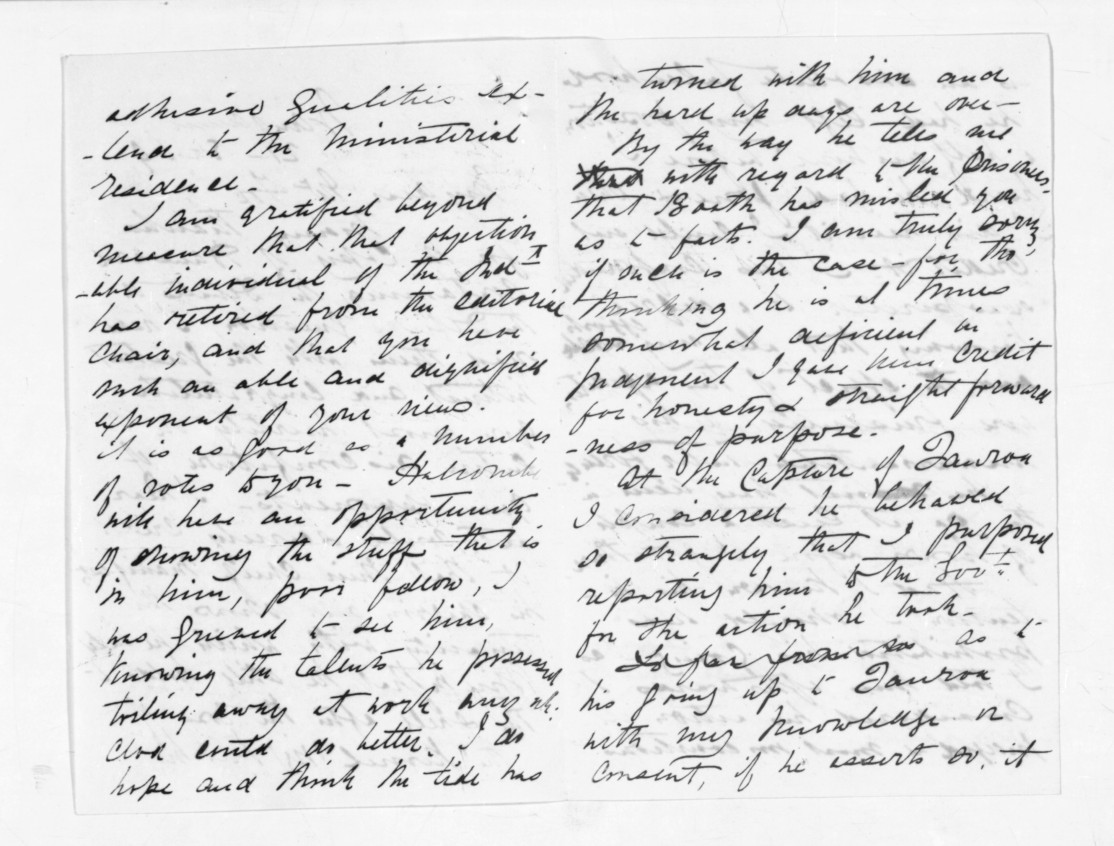 adhesive qualities ex-
-tend to the ministerial
residence -
I am gratified beyond
measure that that objection
-able individual of the Indt
has retired from the editorial
chair, and that you have
such an able and dignified
exponent of your views.
it is as good as a number
of votes to you - Halcombe
will have an opportunity
of showing the stuff that is
in him, poor fellow, I
was grieved to see him,
knowing the talents he possessed
toiling away at work any
clod could do better. I do
hope and think the tide has
turned with him and
the hard up days are over -
By the way he tells me
that with regard to the prisoners,
that Booth has misled you
as to facts. I am truly sorry
if such is the case - for tho'
thinking he is at times
somewhat deficient in
judgement I gave him credit
for honesty & straight forward
-ness of purpose.
At the Capture of Tauroa
I considered he behaved
so strangely that I purposed
reporting him to the Govt
for the action he took -
so far from as to
his going up to Tauroa
with my knowledge or
consent, if he asserts so, it